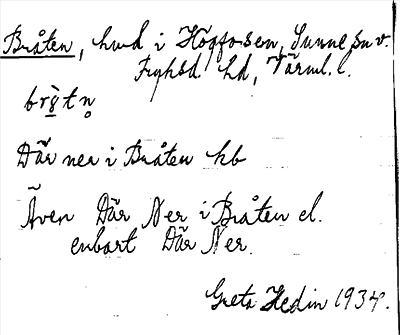 Bråten, hmd i Högforsen, Sunne sn v.
Fryksd. hd, Värml. l.
brå̀tn̥
Där ner i Bråten hb
Även Där Ner i Bråten el.
enbart Där Ner.
Greta Hedin 1934.